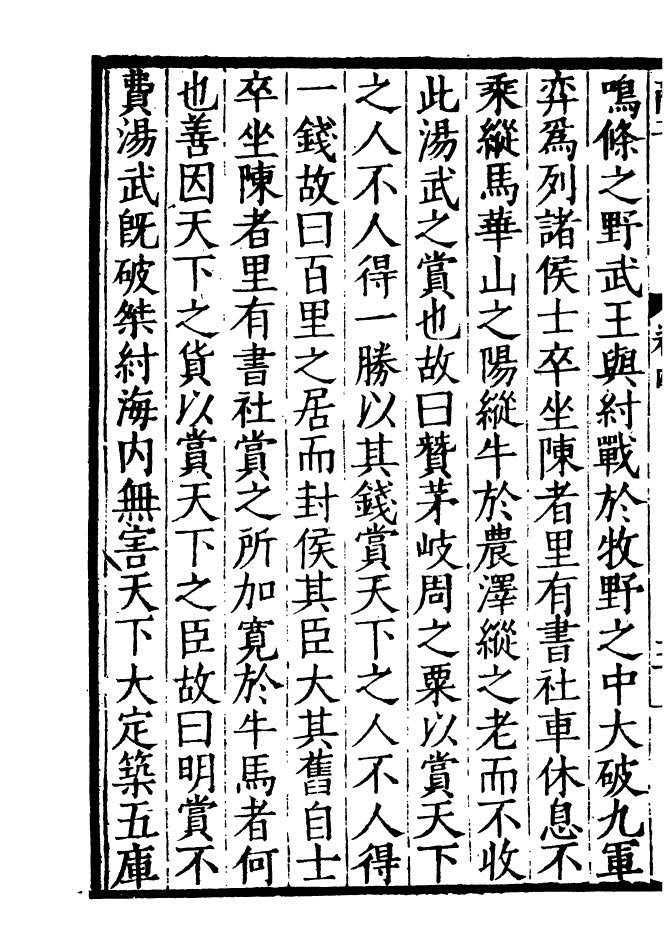 鳴條之野武王與紂戰於牧野之中大破九軍
卒爲列諸侯士卒坐陳者里有書社車休息不
乘縱馬華山之陽縱牛於農澤縱之老而不收
此湯武之賞也故曰贊茅岐周之粟以賞天下
之人不人得一勝以其錢賞天下之人不人得
一錢故曰百里之居而封侯其臣大其舊自士
卒坐陳者里有書社賞之所加寛於牛馬者何
也善因天下之貨以賞天下之臣故曰明賞不
費湯武旣破桀紂海内無害天下大定築五庫